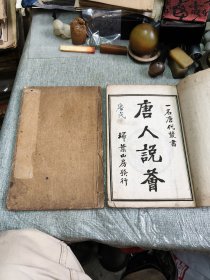 一名唐代叢書
唐人説薈
掃葉山房發行